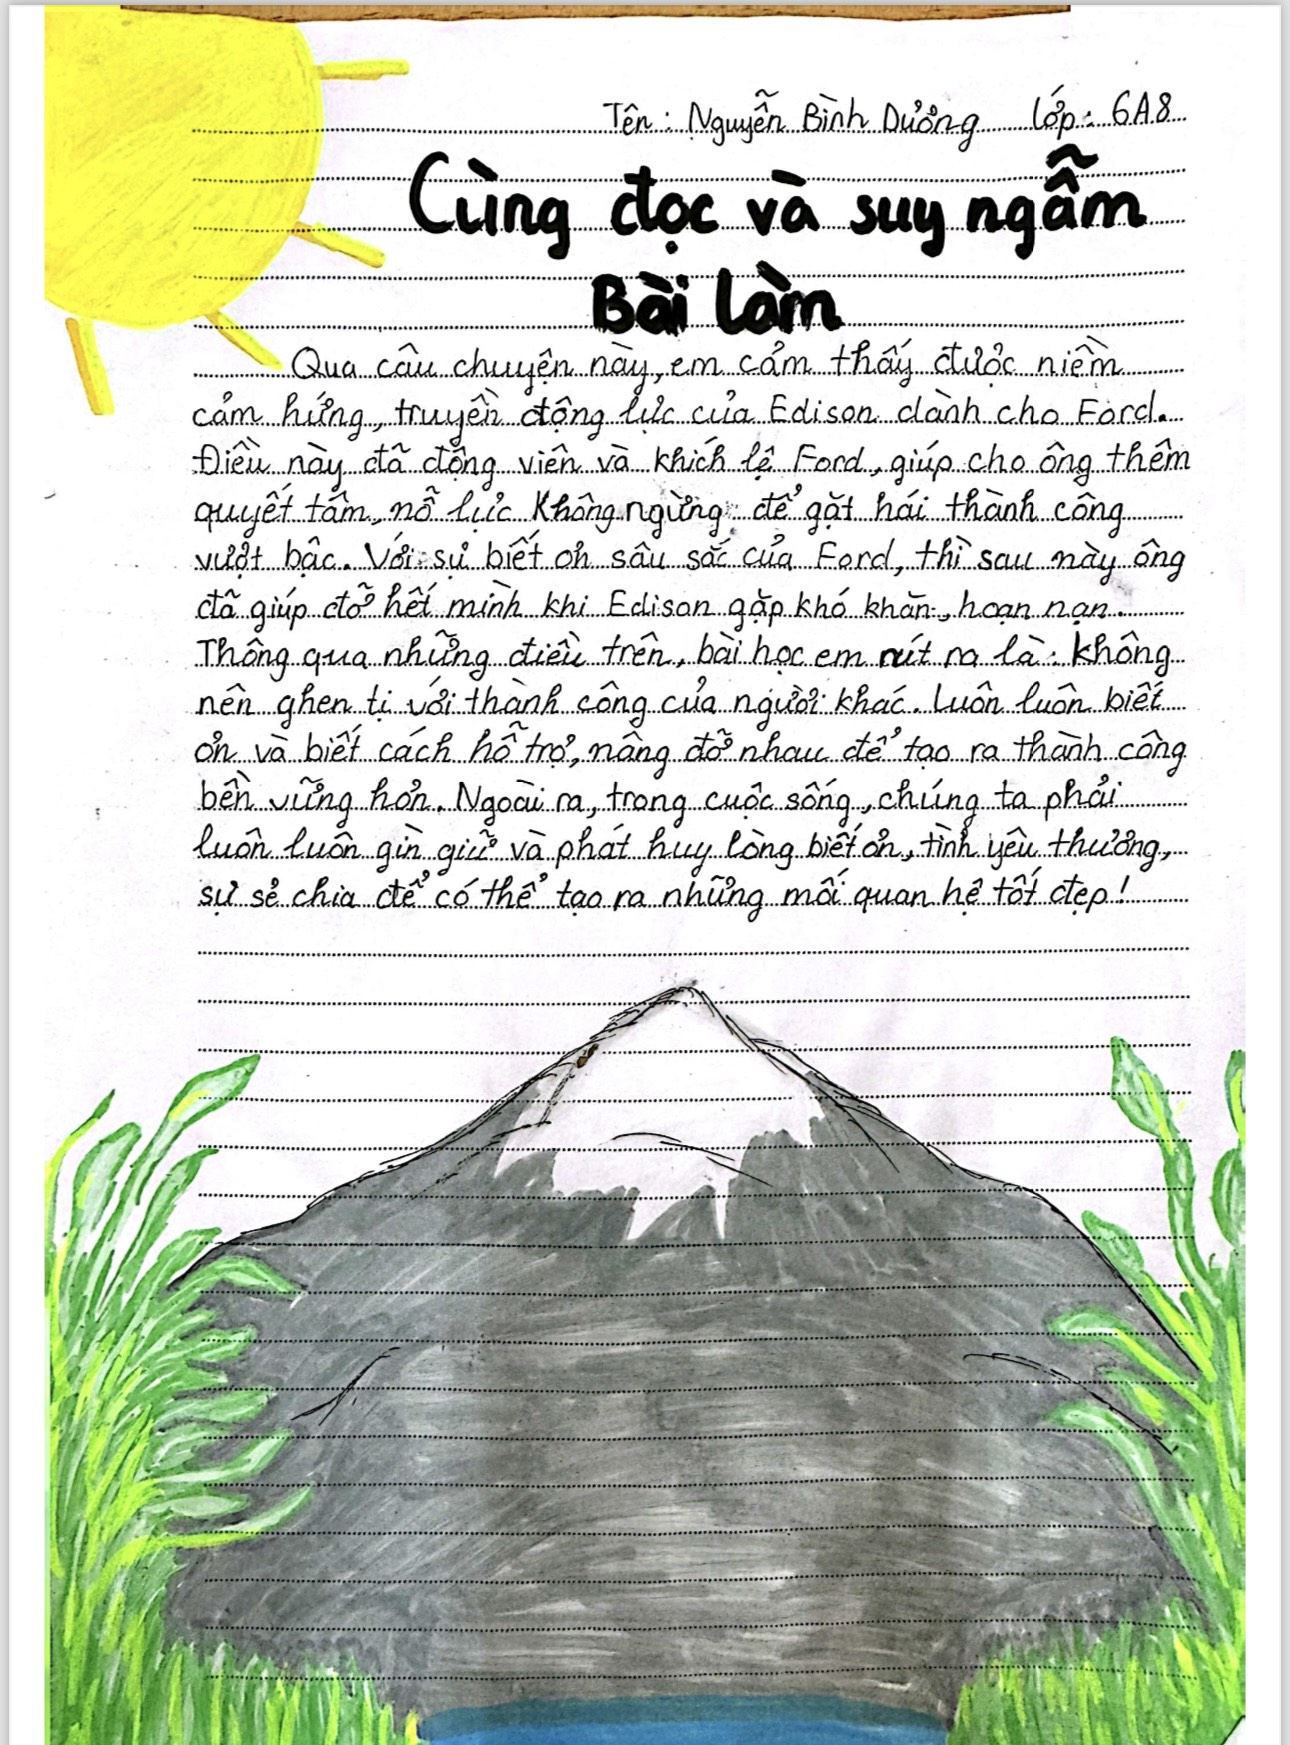 Tên: Nguyễn Bình Dương lớp: 6A8
Cùng đọc và suy ngẫm
Bài làm
Qua câu chuyện này, em cảm thấy được niềm
cảm hứng, truyền động lực của Edison dành cho Ford.
Điều này đã động viên và khích lệ Ford, giúp cho ông thêm
quyết tâm, nỗ lực không ngừng để gặt hái thành công
vượt bậc. Với sự biết ơn sâu sắc của Ford, thì sau này ông
đã giúp đỡ hết mình khi Edison gặp khó khăn, hoạn nạn.
Thông qua những điều trên, bài học em rút ra là: không
nên ghen tị với thành công của người khác. Luôn luôn biết
ơn và biết cách hỗ trợ, nâng đỡ nhau để tạo ra thành công
bền vững hơn. Ngoài ra, trong cuộc sống, chúng ta phải
luôn luôn gìn giữ và phát huy lòng biết ơn, tình yêu thương,
sự sẻ chia để có thể tạo ra những mối quan hệ tốt đẹp!